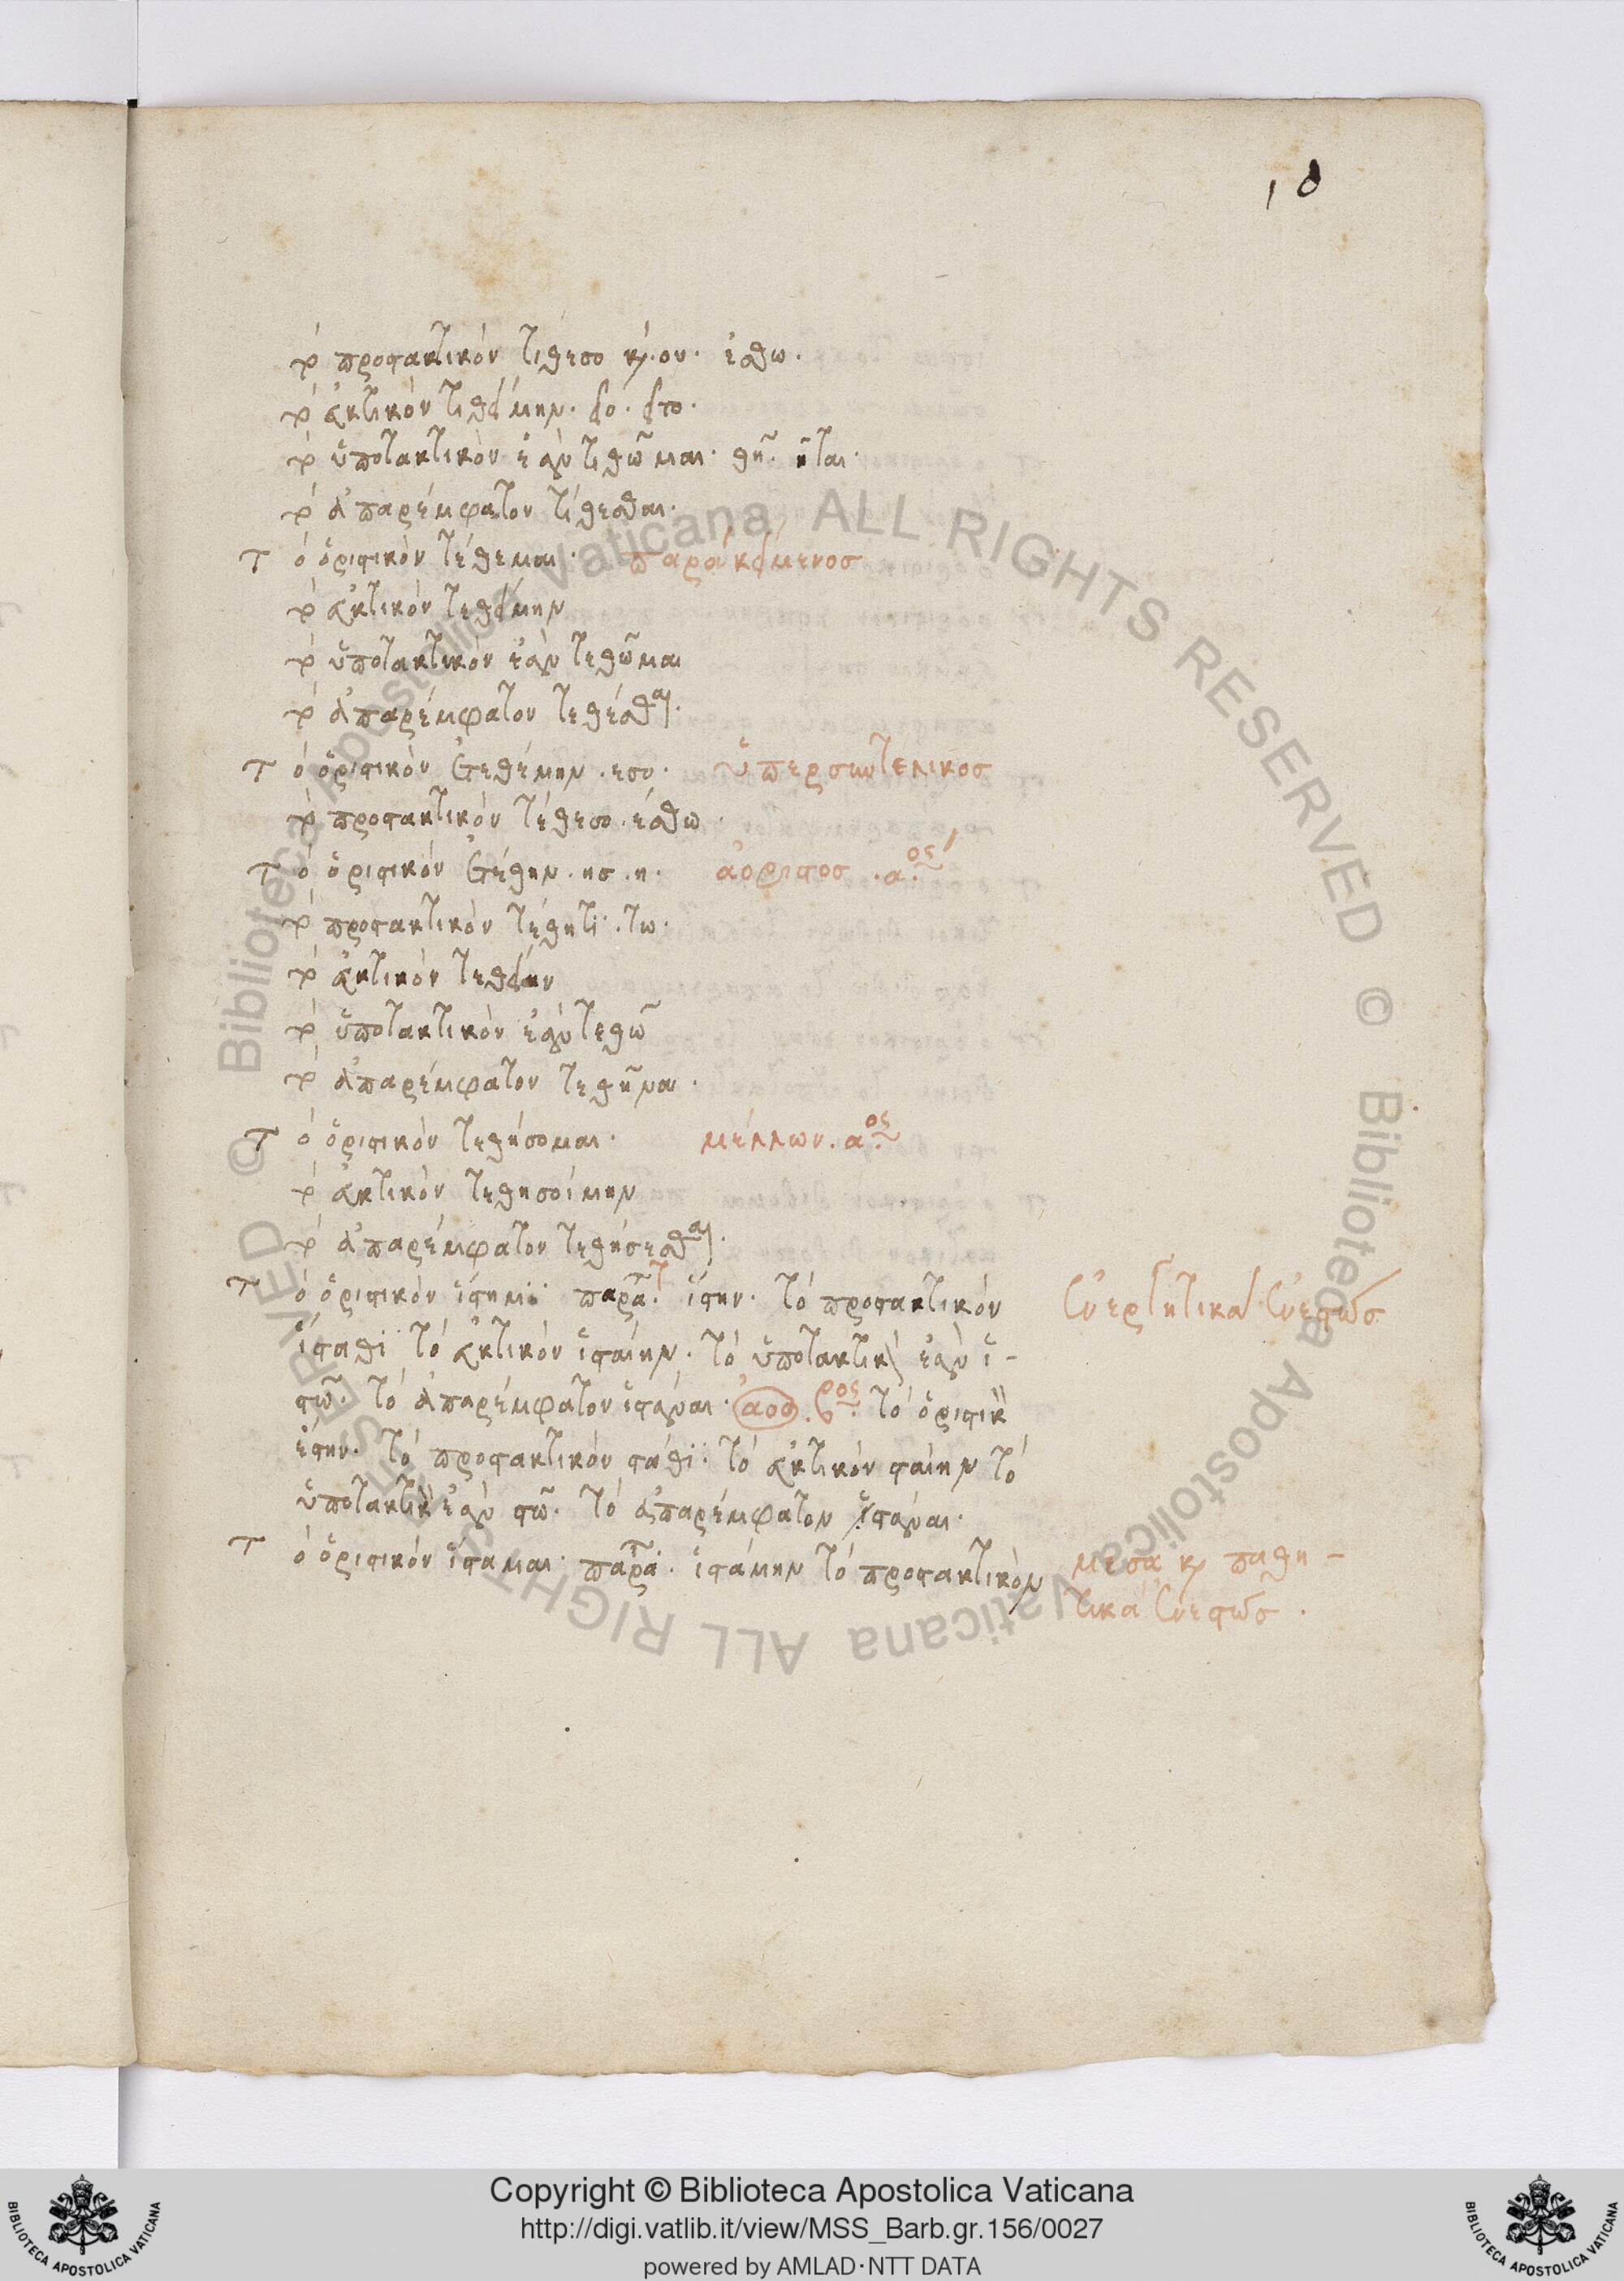 10
τὸ προστακτικὸν τίθεσο καὶ ου. έσθω.
τὸ εὐκτικὸν τιθείμην. εῖο. εῖτο.
τὸ ὑποτακτικὸν ἐὰν τιθῶμαι. θῆ. ῆται.
τὸ ἀπαρέμφατον τίθεσθαι.
Τὸ ὁριστικὸν τέθεμαι. παρακείμενοσ
τὸ εὐκτικὸν τεθείμην
τὸ ὑποτακτικὸν ἐὰν τεθῶμαι
τὸ ἀπαρέμφατον τεθέσθαι.
Τὸ ὁριστικὸν ἐτεθέμην. εσο. ὑπερσυντελικοσ
τὸ προστακτικὸν τέθεσο. έσθω.
Τὸ ὁριστικὸν ἐτέθην. ησ. η. ἀόριστοσ. α.ος
τὸ προστακτικὸν τέθητϊ. τω.
τὸ εὐκτικὸν τεθείην
τὸ ὑποτακτικὸν ἐὰν τεθῶ
τὸ ἀπαρέμφατον τεθῆναι.
Τὸ ὁριστικὸν τεθήσομαι. μέλλων. α.ος
τὸ εὐκτικὸν τεθησοίμην
τὸ ἀπαρέμφατον τεθήσεσθαι.
Τὸ ὁριστικὸν ἵστημϊ παρατ. ἵστην. τὸ προστακτικόν ἐνεργητικὰ ἐνεστῶσ
ἵσταθϊ τὸ εὐκτικὸν ἱσταίην. τὸ ὑποτακτικ ἐὰν ἱ-
στῶ. τὸ ἀπαρέμφατον ἱστάναι. ἀορ. β.ρος τὸ ὁριστικ
ἔστην. τὸ προστακτικὸν στάθϊ. τὸ εὐκτικὸν σταίην τὸ
ὑποτακτικ ἐὰν στῶ. τὸ ἀπαρέμφατον ἱστάναι.
Τὸ ὁριστικὸν ἵσταμαι. παρατ. ἱστάμην τὸ προστακτικὸν μεσα καὶ παθη-
τικὰ ἐνεστῶσ.
Copyright © Biblioteca Apostolica Vaticana
http://digi.vatlib.it/view/MSS_Barb.gr.156/0027
powered by AMLAD·NTT DATA
BIBLIOTECA APOSTOLICA VATICANA
BIBLIOTECA APOSTOLICA VATICANA
© Biblioteca Apostolica Vaticana ALL RIGHTS RESERVED © Biblioteca Apostolica Vaticana ALL RIGHTS RESERVED